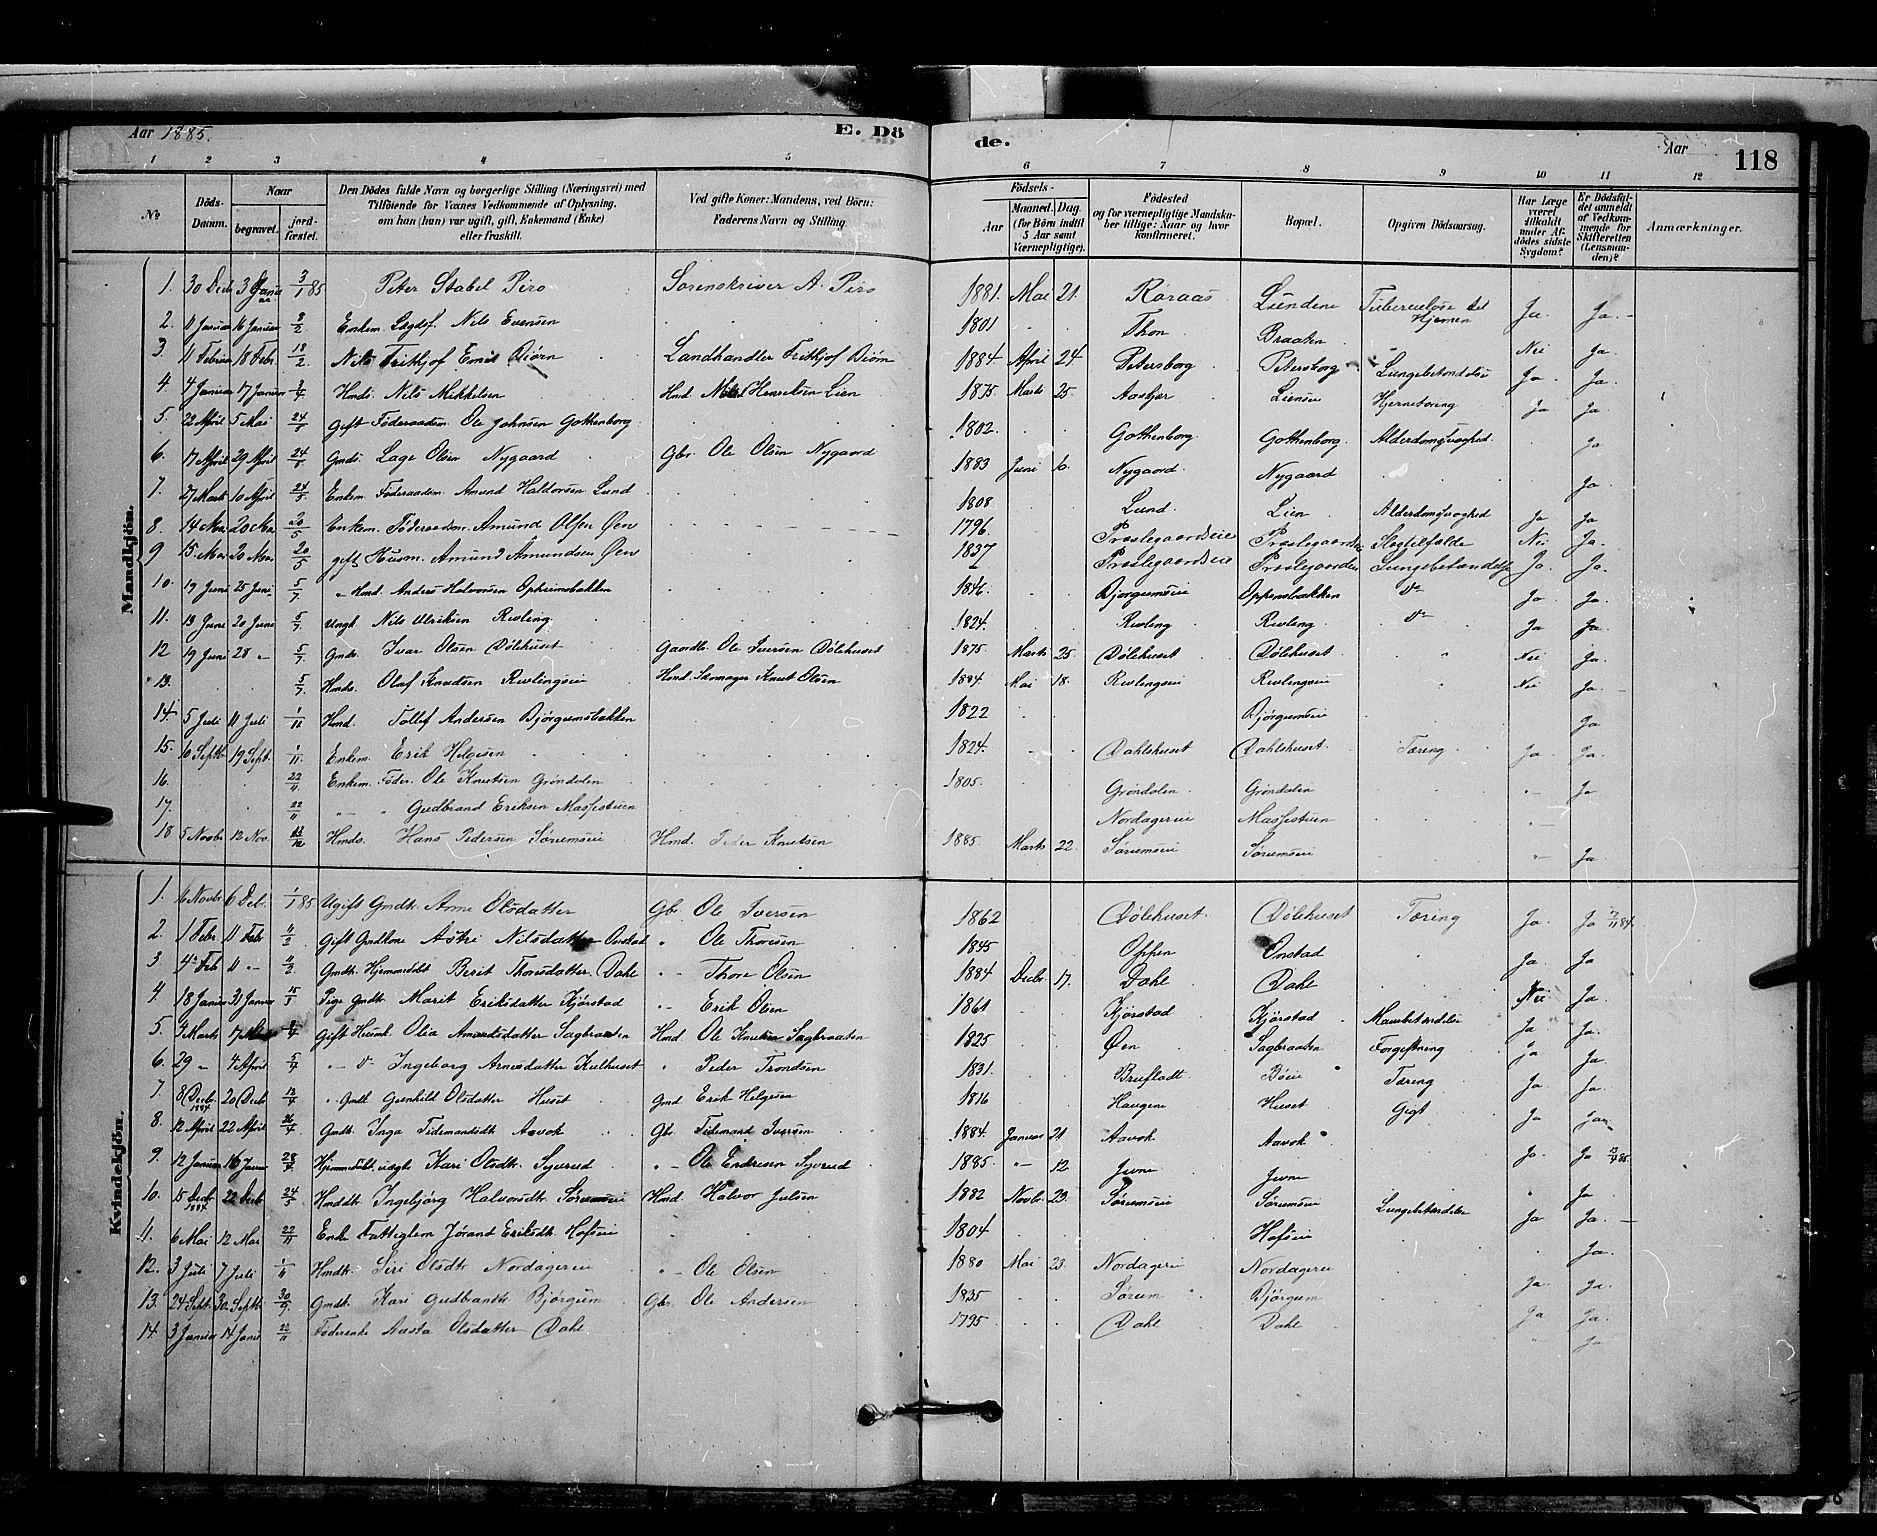 Aar 1885.
E. Dö
de.
Aar
118
1 2 3 4 5 6 7 8 9 10 11 12
No
Döds-Datum.
Naar
begravet.
jord-fæstet.
Den Dödes fulde Navn og borgerlige Stilling (Næringsvei) med
Tilföiende for Voxnes Vedkommende af Oplysning,
om han (hun) var ugift, gift, Enkemand (Enke)
eller fraskilt.
Ved gifte Koner: Mandens, ved Börn:
Faderens Navn og Stilling.
Födsels-
Aar
Maaned. Dag.
(for Börn indtil 5 Aar samt Værnepligtige).
Födested
og for værnepligtige Mandska-
ber tillige: Naar og hvor
konfirmeret.
Bopæl.
Opgiven Dödsaarsag.
Har Læge været tilkaldt under Af-dödes sidste Sygdom?
Er Dödsfal-det anmeldt af Vedkom-mende for Skifteretten (Lensman-den)?
Anmærkninger.
Mandkjön.
1. 30 Decb 3 Januar 3/1 85 Peter Stabel Piro Sorenskriver A. Piro 1881. Mai 21. Røraas Lundene Tuberculose Ja. Ja.
2. 11 Januar 16 Januar 8/2 Enkem. Lægdsl. Nils Evensen 1801 Thon Braaten Nei Ja
3. 11 Februar 18 Febr. 18/2 Nils Frithjof Emil Biørn Landhandler Frithjof Biørn 1884 April 24. Petersborg Petersborg Lungebetændelse Ja Ja.
4. 4 Januar 17 Januar Hmds. Nils Mikkelsen Hmd. Henriksen Lien 1875 Marts 25. Lien Hjernetæring Ja Ja
5. 22 April 5 Mai 24/5 gift Føderaadsm. Ole Johnsen Gothenborg 1802. Gothenborg. Gothenborg. Alderdomssvaghed. Ja
6. 17 April 29 April 24/5 Gmds. Lage Olsen Nygaard Gbr. Ole Olsen Nygaard 1883 Juni 6. Nygaard. Nygaard Ja.
7. 27 Marts 10 April 24/5 Enkem. Føderaadsm. Amund Haldorsen Lund 1808 Lund. Lien Alderdomssvaghed Ja Ja
8. 14 Mai 20 Mai 20/5 Enkem. Føderaadsm. Amund Olsen Øen 1796. Præstegaardseie Præstegaardseie Slagtilfælde Nei Ja.
9 15 Mai 20 Mai 20/5 gift Husm. Amund Amundsen Øen 1837 Præstegaardseie Præstegaardseie Lungebetændelse Ja. Ja.
10. 19 Juni 25 Juni 5/7 " Hmd. Anders Halvorsen Opheimsbakken 1846. Bjørgumseie Oppensbakken do Ja Ja.
11. 13 Juni 20 Juni 5/7 Ungk. Nils Ulriksen Rivling 1824. Rivling Rivling. do Ja Ja.
12 19 Juni 28 " 5/7 Gmds. Ivar Olsen Dølehuset Gaardbr. Ole Iversen Dølehuset 1875 Marts 25. Dølehuset Dølehuset. " Nei Ja.
13. 5/7 Hmds. Olaf Knudsen Rivlingseie Hmd. Skomager Knut Olsen 1884. Mai 18. Rivlingseie Rivlingseie " Nei Ja.
14. 5 Juli 11 Juli 1/11 Hmd. Tollef Andersen Bjørgumsbakken 1822 Bjørgumseie Ja
15. 10 Septb. 19 Sept. 1/11 Enkem. Erik Helgesen 1824. Dahlshuset Dahlshuset. Tæring. Ja Ja.
16. 22/11 Enkem. Føder. Ole Knutsen Grøndalen 1805. Grøndalen. Grøndalen " Ja
17 22/11 " " Gudbrand Eriksen Massesteien Nordagereie Massesteien "
18 5 Novbr. 12 Nov. Hmds. Hans Pedersen Sørumseie Hmd. Peder Knutsen 1885. Marts 22. Sørumseie Sørumseie " Ja.
Kvindekjön.
1. 6 Novbr 6 Deb. 1/1 85 Ugift Gmdt. Anne Olsdatter Gbr. Ole Iversen 1862 Dølehuset. Dølehuset Tæring Ja. Ja
2. 1 Febr. 11 Febr 11/2 Gift Gmdkone Astri Nilsdatter Onstad " Ole Thoresen 1845 Oppen Onstad Ja Ja
3 4 Feb 11 " 11/2 Gmdt. Hjemmedøbt Berit Thorsdatter Dahl " Thore Olsen 1884 Decbr. 17. Dahl Dahl Nei Ja
4. 18 Januar 31 Januar 15/3 Pige Gmdt. Marit Eriksdatter Kjørstad " Erik Olsen 1861 Kjørstad Kjørstad Mavebetændelse Ja. Ja.
5. 9 Marts 17 5/4 Gift Husmk. Olia Amundsdatter Sagbraaten Hmd. Ole Knutsen Sagbraaten 1825 Øen Sagbraaten Forgiftning Ja Ja
6. 29 " 4 April 5/4 " do Ingeborg Arnesdatter Kulhuset " Peder Trondsen 1831. Brufladt. Bøeie Tæring Ja Ja.
7 8 Decb. 1884 20 Decb 12/4 " Gmdk Gunhild Olsdatter Huset Gmd Erik Helgesen 1816 Haugene Huset Gigt Ja Ja
8. 12 April 22 April 26/4 Gmdt. Inga Tidemandsdt. Aavok Gbr. Tidemand Iversen 1884. Januar 21 Aavok Aavok Ja. Ja
9. 12 Januar 16 Januar 28/4 Hjemmedøbt, uægte Kari Olsdt. Syverud " Ole Endresen Syverud 1885. " 12. Juvne Juvne " Ja
10. 15 Decb 1884 22 Decb 24/5 Hmddt. Ingebjørg Halvorsdt. Sørumseie Hmd. Halvor Julsen 1882 Novbr. 23. Sørumseie Sørumseie Lungebetændelse Ja Ja.
11. 6 Mai 12 Mai 22/11 Enke Fattiglem Jørand Eriksdt. Hofseie 1804 Hofseie Ja.
12. 3 Juli 7 Juli 1/11 Hmdt. Siri Olsdt Nordagereie " Ole Olsen 1880 Mai 23. Nordagereie Nordagereie Ja. Ja.
13. 24 Sept. 30 Septb. 30/9 Gmdt. Kari Gudbrandsdt. Bjørgum Gbr. Ole Andersen 1835 Sørum Bjørgum Ja Ja.
14. 3 Januar 14 Janu 22/11 Føderenke Aasta Olsdatter Dahl 1795 Dahl Dahl " Ja